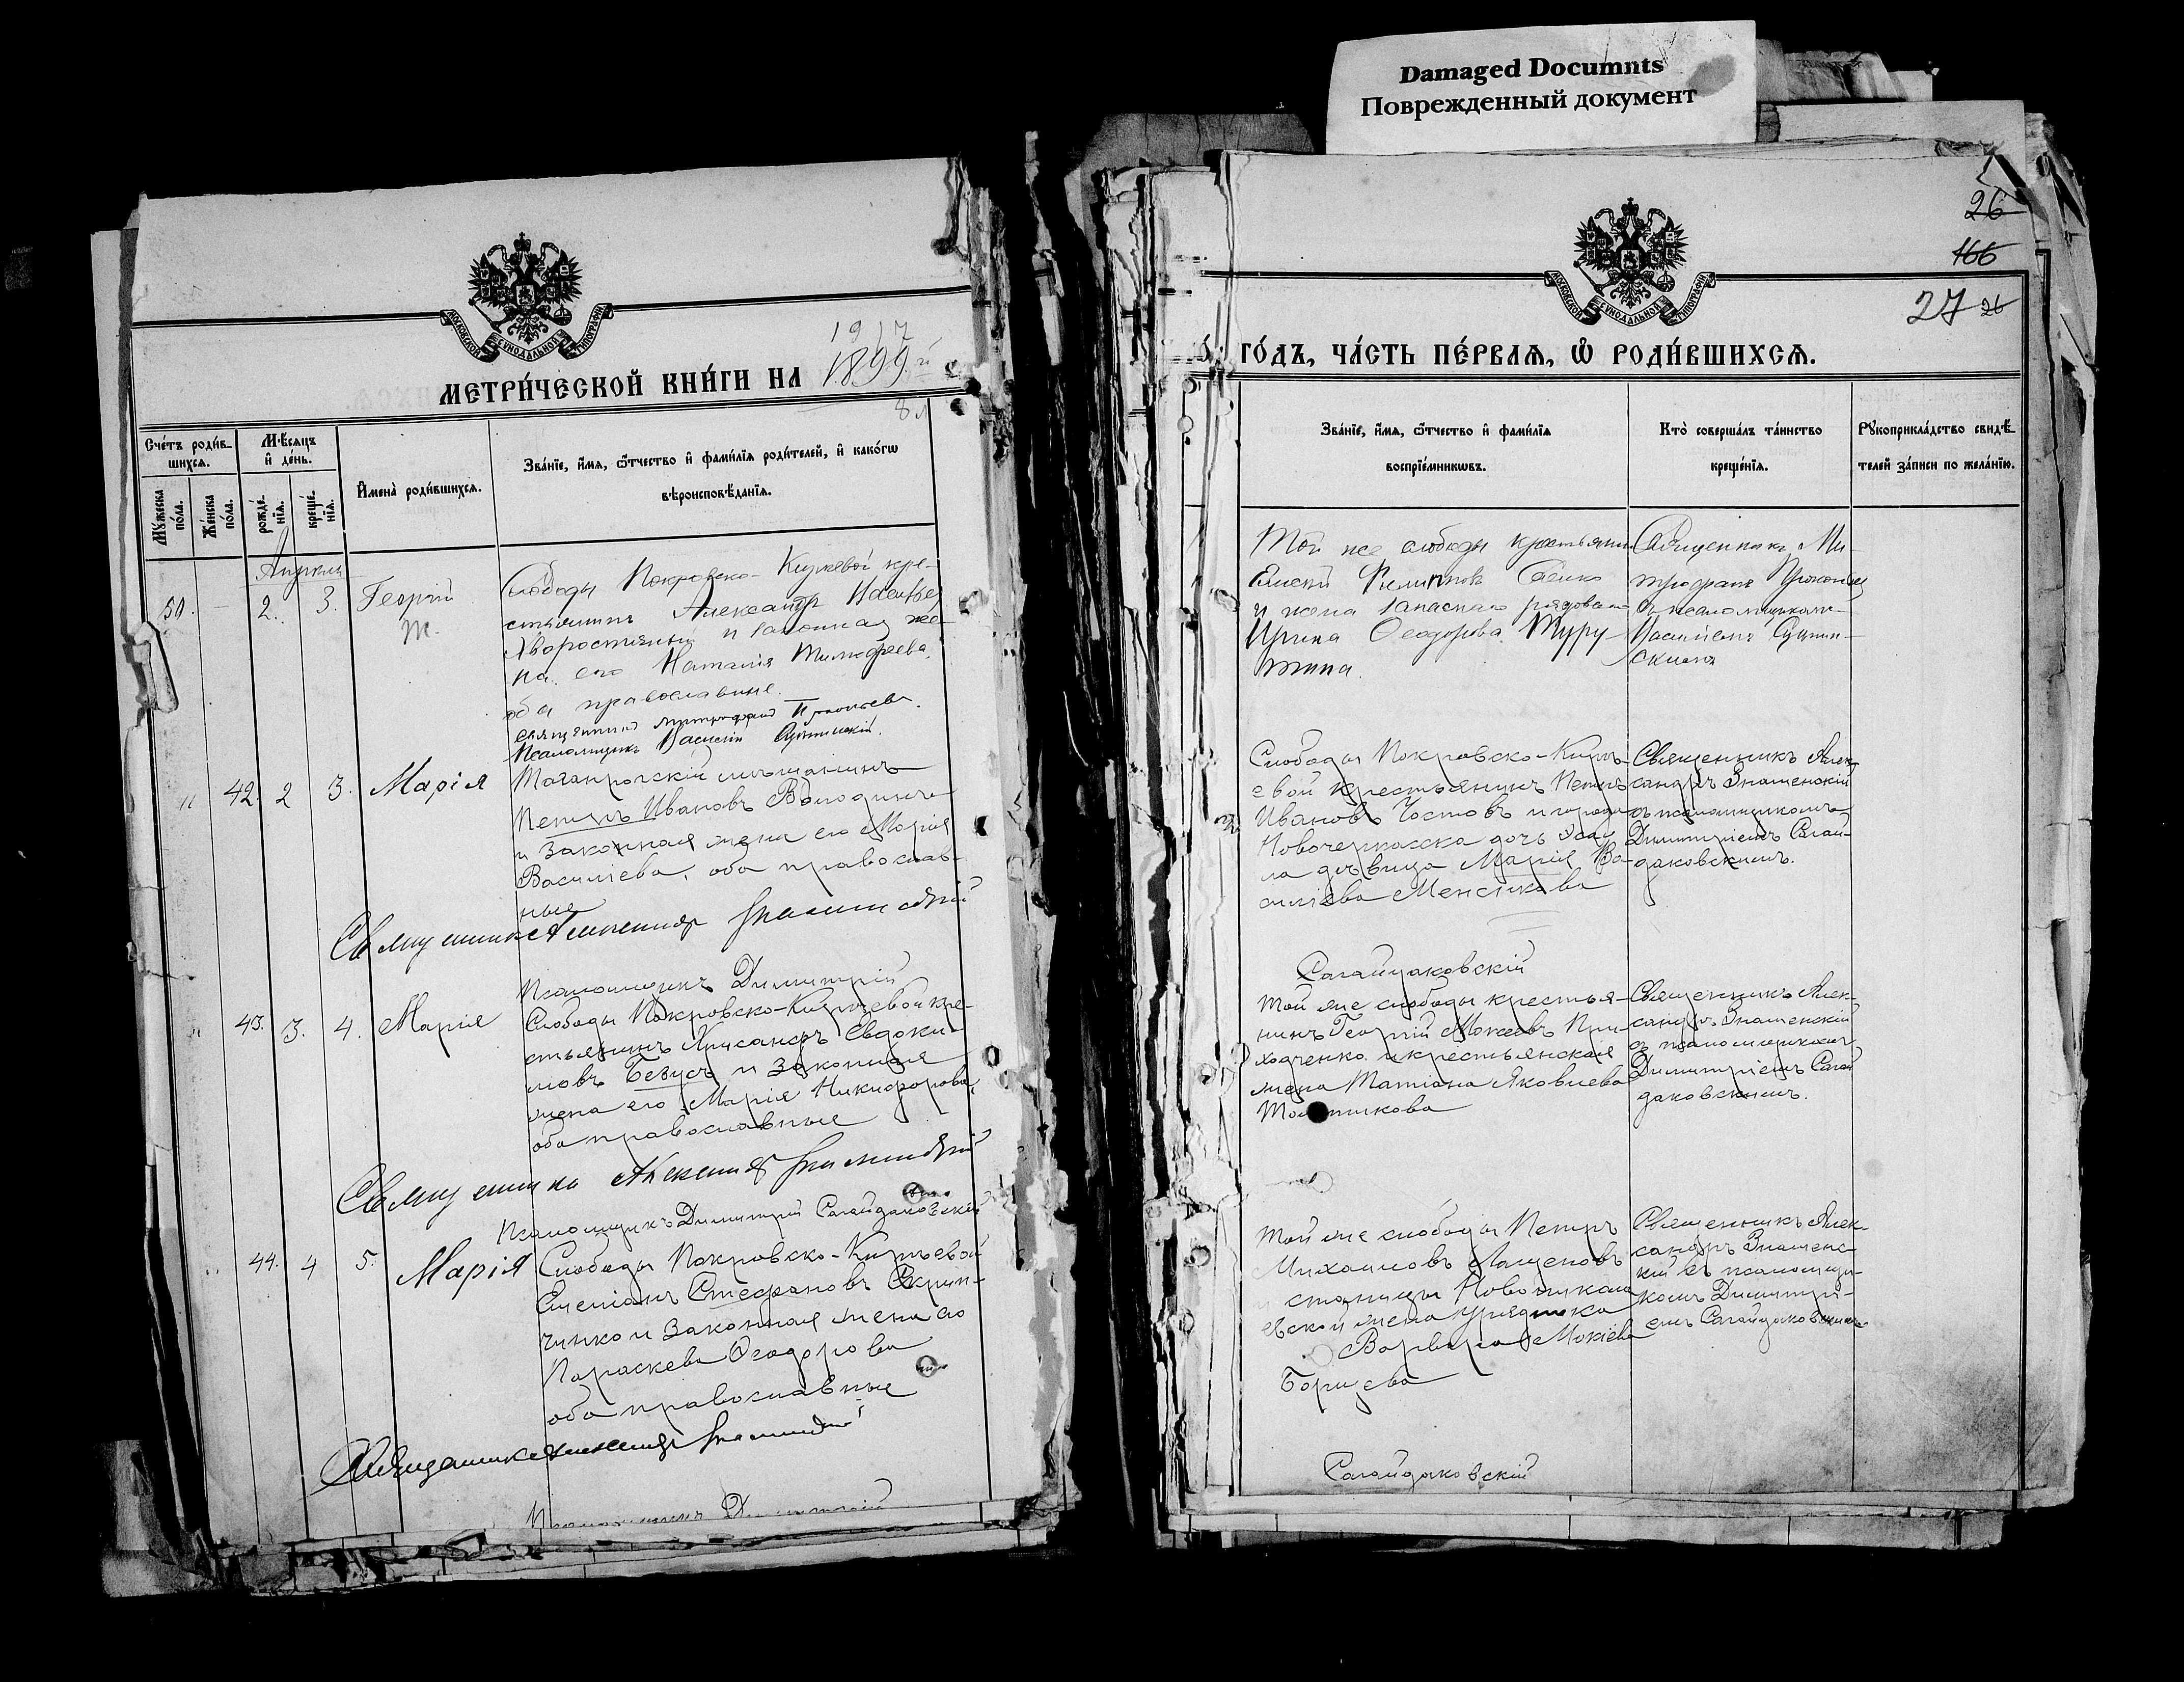 Damaged Documnts
Поврежденный документ
26
166
27 26
МОСКОВСКОЙ СѴНОДАЛЬНОЙ ТИПОГРАФІИ
1917
МЕТРИ́ЧЕСКОЙ КНИ́ГИ НА 1899
Сче́тъ роди́в-
шихся.
Мѣ́сяцъ
и҆ де́нь.
Мꙋ́жеска
по́ла.
Же́нска
по́ла.
рожде́-
нїѧ.
креще́-
нїѧ.
И҆мена̀ роди́вшихсѧ.
Зва́нїе, и҆́мѧ, ѻ҆́тчество и҆ фами́лїѧ роди́телей, и҆ како́гѡ
вѣроисповѣ́данїѧ.
Апрѣль
50. 2. 3. Георгій
Слободы Покровско-Киреевой кре-
стьянинъ Александръ
и законная же-
на его Наталія Тимофеева,
оба православные.
Священникъ Митрофанъ Прокопьевъ.
Псаломщикъ Василій
42. 2 3. Марія
Таганрогскій мѣщанинъ
Петръ Ивановъ Володинъ
и законная жена его Марія
Васильева, оба православ-
ные
Священникъ Александръ Знаменскій
Псаломщикъ Димитрій
43. 3. 4. Марія
Слободы Покровско-Киреевой кре-
стьянинъ Александръ Евдоки-
мовъ Безусъ и законная
жена его Марія Никифорова,
оба православные
Священникъ Александръ Знаменскій
Псаломщикъ Димитрій Сагайдаковскій
44. 4 5. Марія
Слободы Покровско-Киреевой
Стефановъ Скрип-
чинко и законная жена его
Параскева Ѳеодорова
оба православные
Священникъ Александръ Знаменскій
Псаломщикъ Димитрій
МОСКОВСКОЙ СѴНОДАЛЬНОЙ ТИПОГРАФІИ
ГО́ДЪ, ЧА́СТЬ ПЕ́РВАѦ, Ѽ РОДИ́ВШИХСѦ.
Зва́нїе, и҆́мѧ, ѻ҆́тчество и҆ фами́лїѧ
воспрїе́мникѡвъ.
Кто̀ соверша́лъ та́инство
креще́нїѧ.
Рꙋкоприкла́дство свидѣ́-
телей за́писи по жела́нїю.
Той же слободы крестьянинъ
Филиповъ
и жена запаснаго рядоваго
Ирина Ѳеодорова
Священникъ Ми-
трофанъ
съ псаломщикомъ
Василіемъ
Слободы Покровско-Кире-
евой крестьянинъ Петръ
Ивановъ и города
Новочеркасска дочь
дѣвица Марія Ва-
сильева Менсикова
Священникъ Алек-
сандръ Знаменскій
съ псаломщикомъ
Димитріемъ Сагай-
даковскимъ.
Сагайдаковскій
Той же слободы крестья-
нинъ Георгій Мокеевъ При-
ходченко и крестьянская
жена Татіана Яковлева
Священникъ Алек-
сандръ Знаменскій
съ псаломщикомъ
Димитріемъ Сагай
даковскимъ.
Той же слободы Петръ
Михаиловъ Лященовъ
станицы Новонико
евской жена урядника
Варвара Мокіева
Борщева
Священникъ Алек-
сандръ Знаменс-
кій съ псаломщи-
комъ Димитрі-
емъ Сагайдаковскимъ
Сагайдаковскій